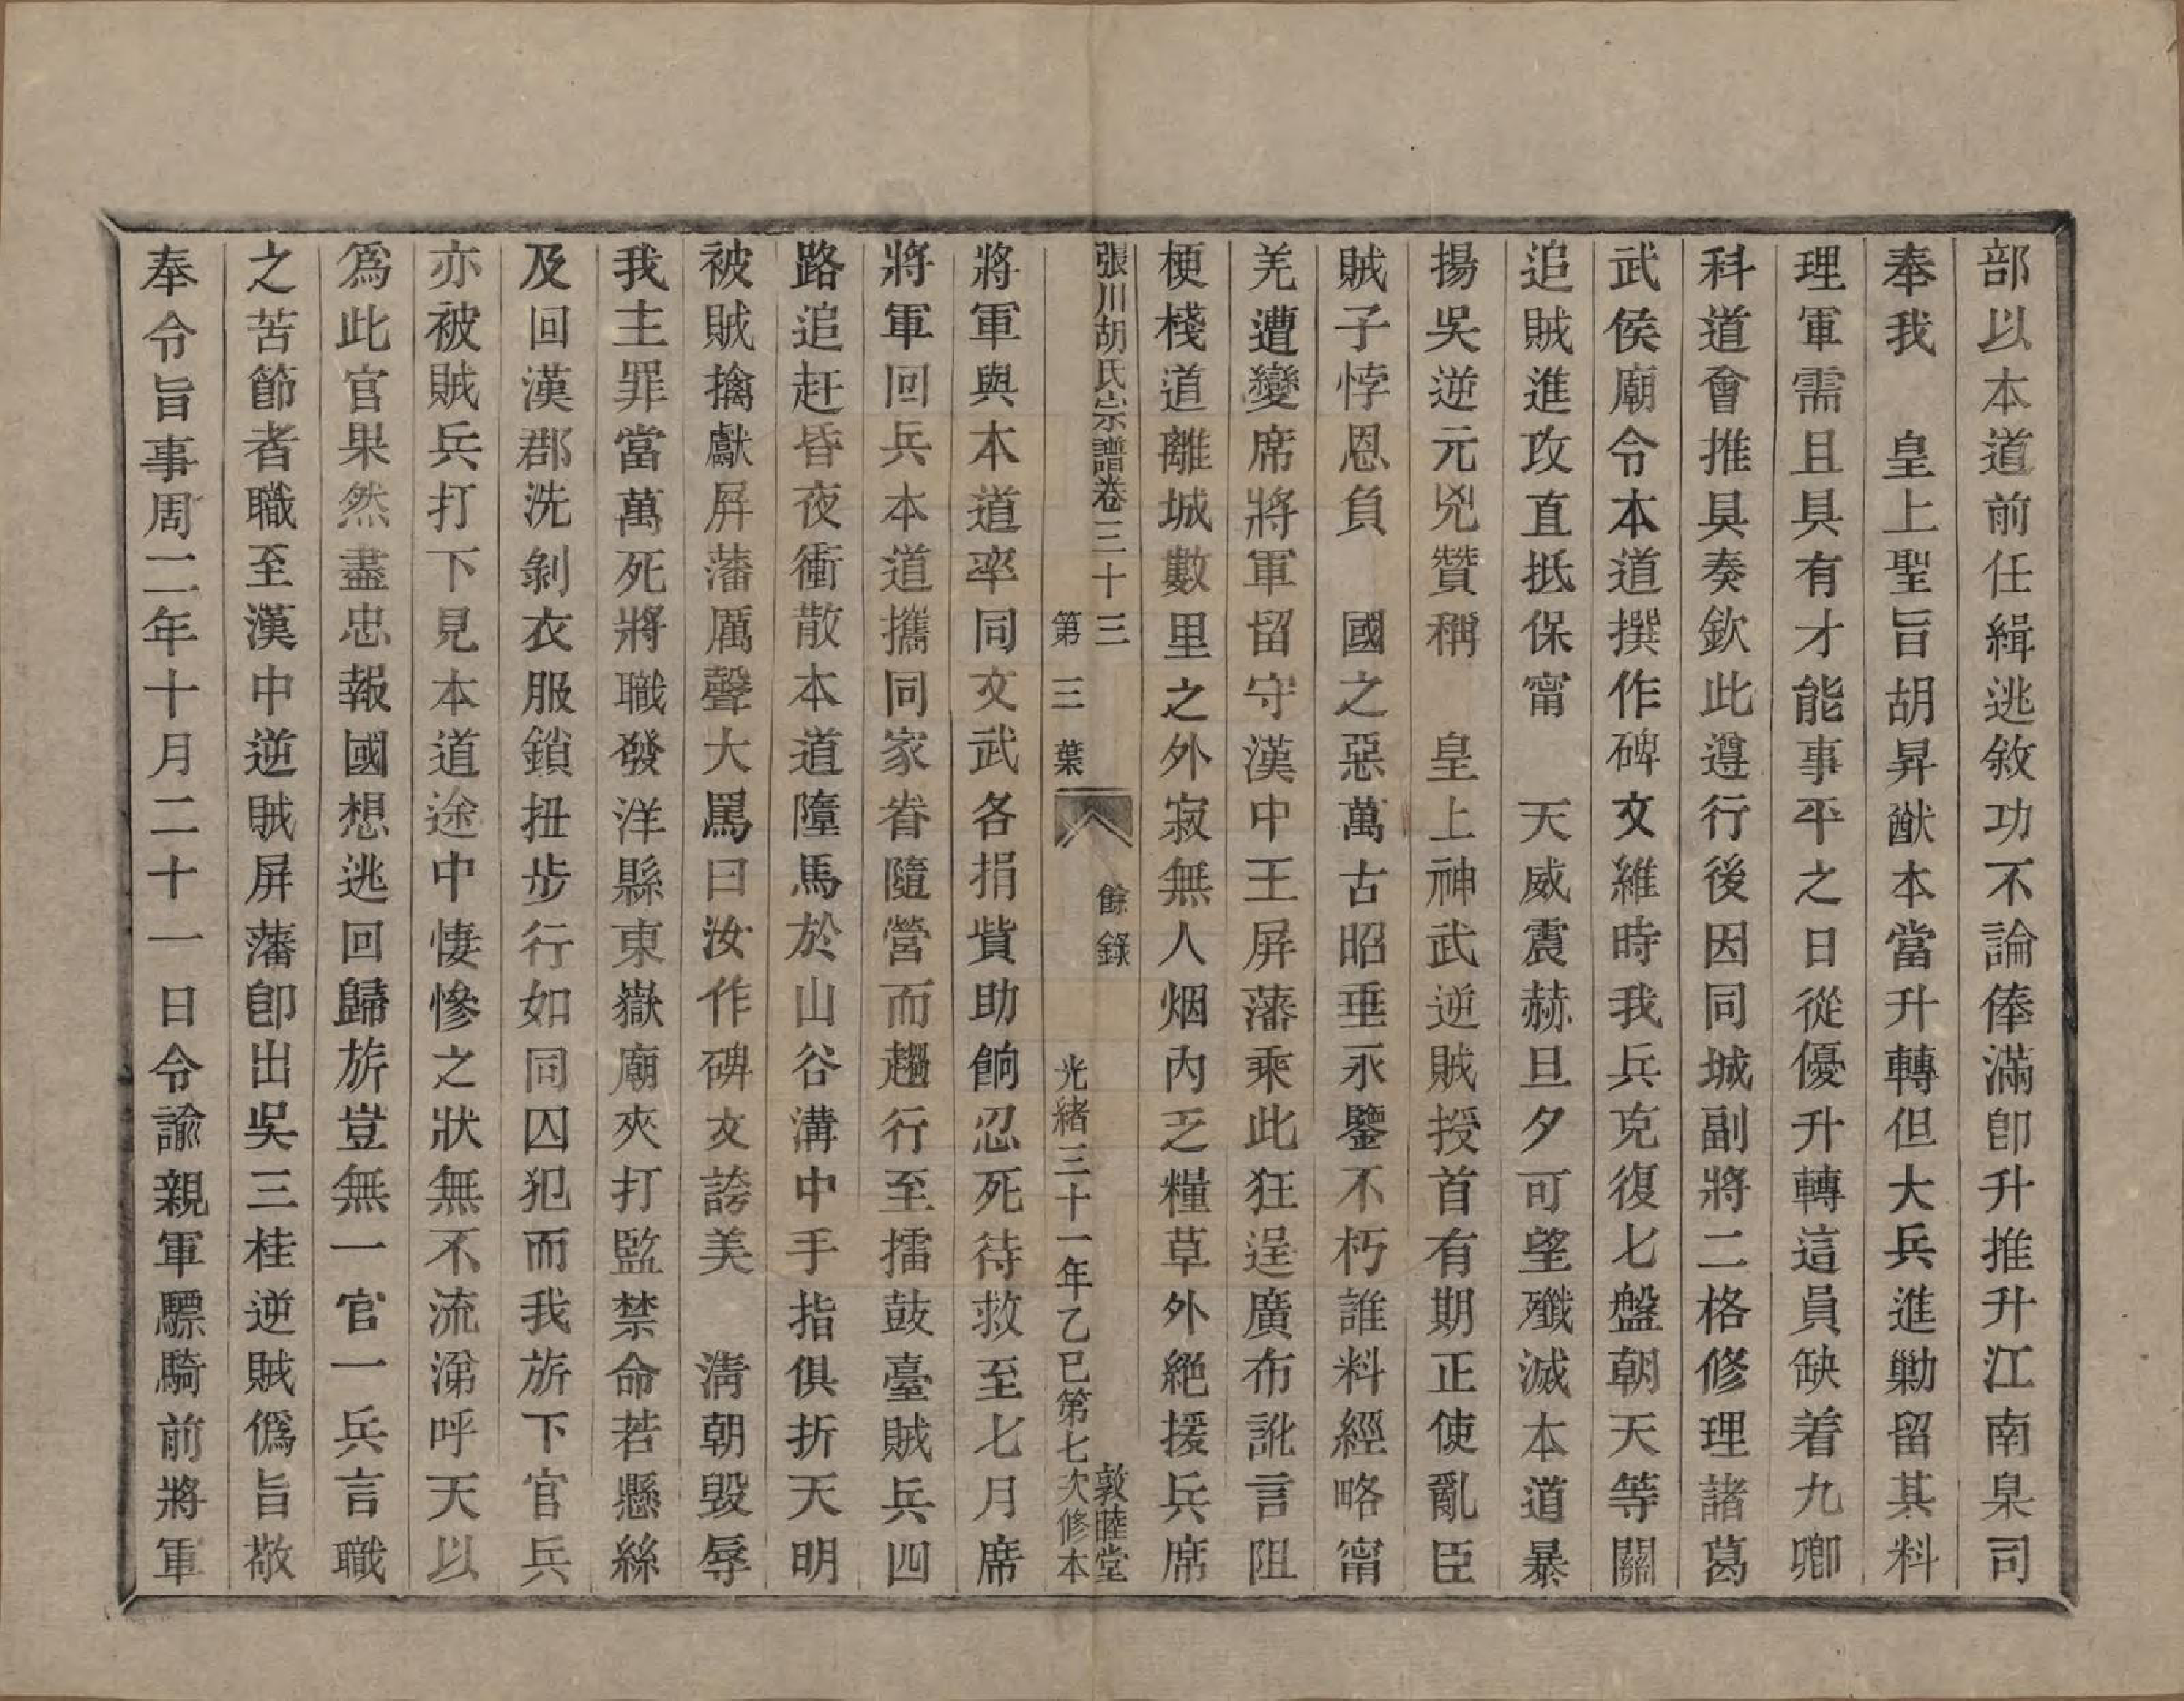 部以本道前任緝逃敘功不論俸滿卽升推升江南臬司
奉我　皇上聖旨胡昇猷本當升轉但大兵進勦留其料
理軍需且具有才能事平之日從優升轉這員缺着九卿
科道會推具奏欽此遵行後因同城副將二格修理諸葛
武侯廟令本道撰作碑文維時我兵克復七盤朝天等關
追賊進攻直抵保甯　天威震赫旦夕可望殲滅本道暴
揚吳逆元兇贊稱　皇上神武逆賊授首有期正使亂臣
賊子悖恩負　國之惡萬古昭垂永鑒不朽誰料經略甯
羌遭變席將軍留守漢中王屏藩乘此狂逞廣布訛言阻
梗棧道離城數里之外寂無人烟內乏糧草外絕援兵席
張川胡氏宗譜卷三十三　餘錄　敦睦堂
第三葉　光緒三十一年乙巳第七次修本
將軍與本道率同文武各捐貲助餉忍死待救至七月席
將軍回兵本道攜同家眷隨營而趲行至擂鼓臺賊兵四
路追赶昏夜衝散本道墮馬於山谷溝中手指俱折天明
被賊擒獻屏藩厲聲大罵曰汝作碑文誇美　淸朝毀辱
我主罪當萬死將職發洋縣東嶽廟夾打監禁命若懸絲
及回漢郡洗剝衣服鎖扭步行如同囚犯而我旂下官兵
亦被賊兵打下見本道途中悽慘之狀無不流涕呼天以
爲此官果然盡忠報國想逃回歸旂豈無一官一兵言職
之苦節者職至漢中逆賊屏藩卽出吳三桂逆賊僞旨敬
奉令旨事周二年十月二十一日令諭親軍驃騎前將軍